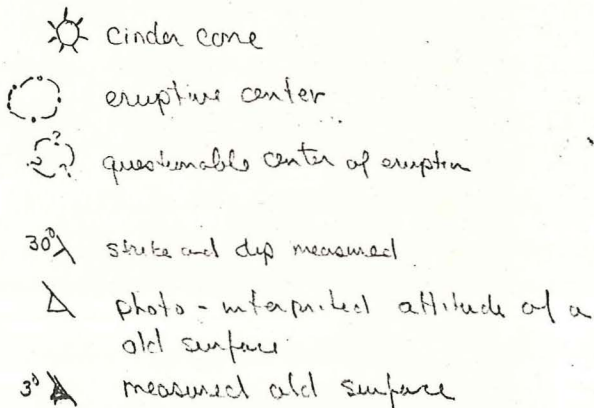 cinder cone
eruptive center
? ? ? questionable center of eruption
30° strike and dip measured
photo-interpreted attitude of a
old surface
3° measured old surface